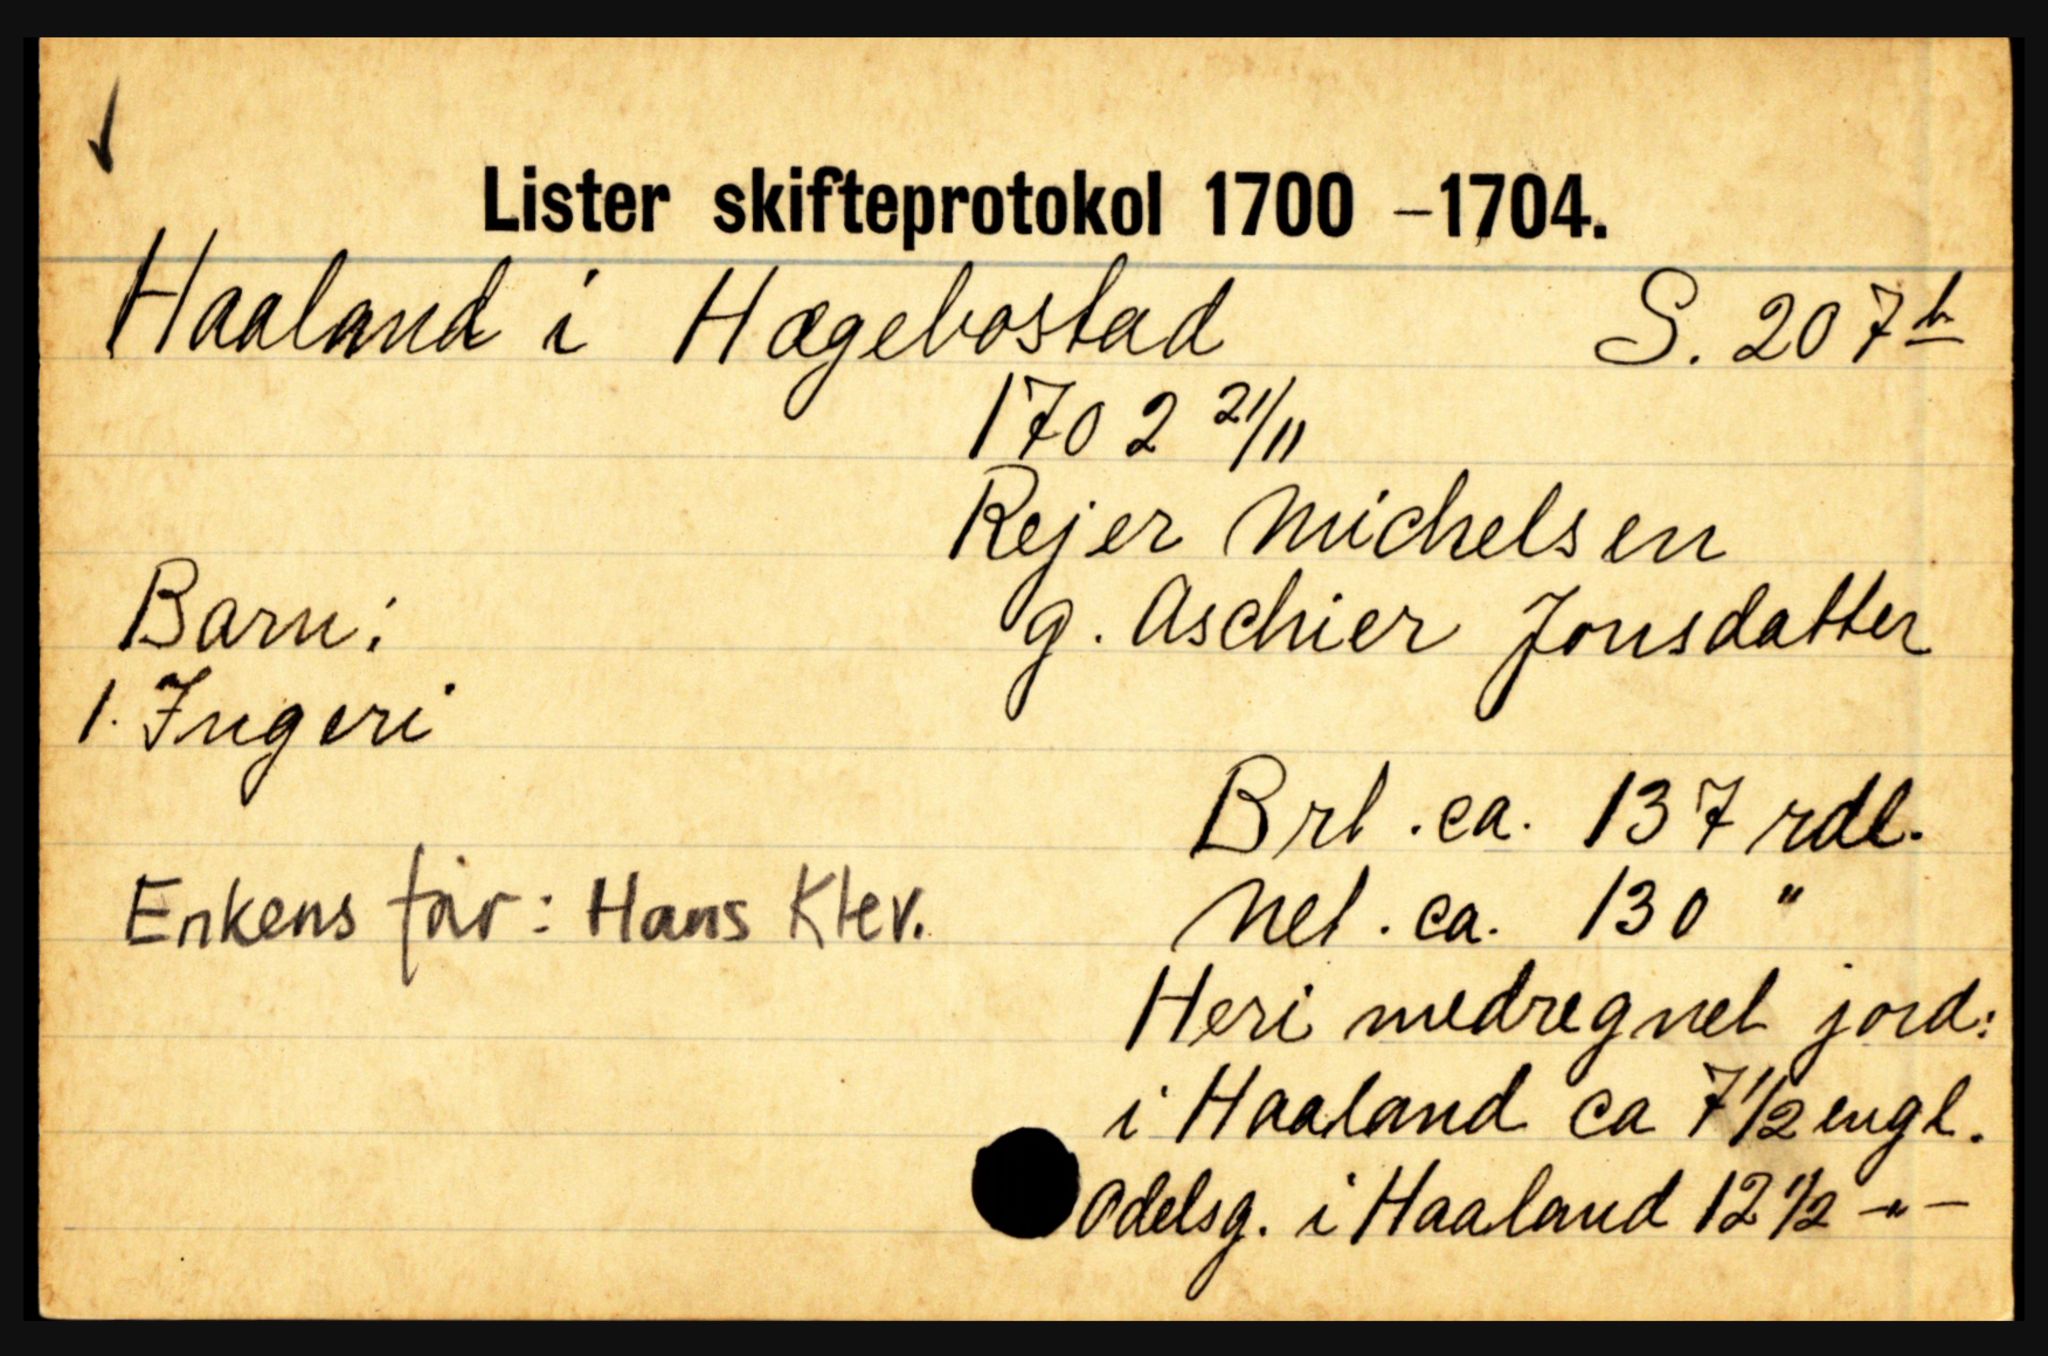 Lister skifteprotokol 1700 –1704.
Haaland i Hægebostad S. 207b
1702 21/11
Rejer Michelsen
g. Aschier Jonsdatter
Barn:
1. Ingeri
Brt. ca. 137 rdl.
Net. ca. 130 "
Enkens får: Hans Klev.
Heri medregnet jord:
i Haaland ca 7 1/2 engl.
Odelsg. i Haaland 12 1/2 -"-